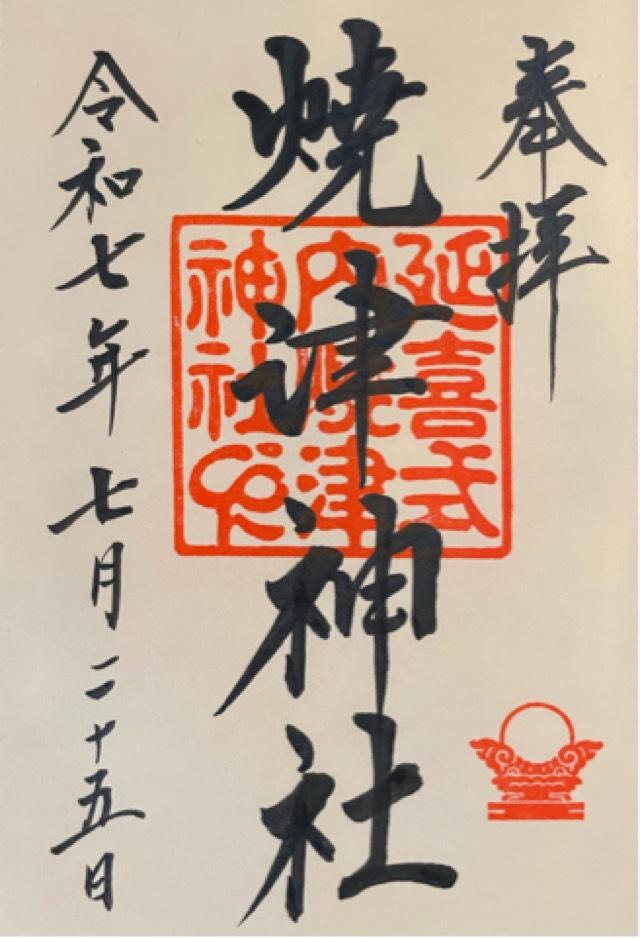 奉拝
焼津神社
延喜式
内焼津
神社印
令和七年七月二十五日